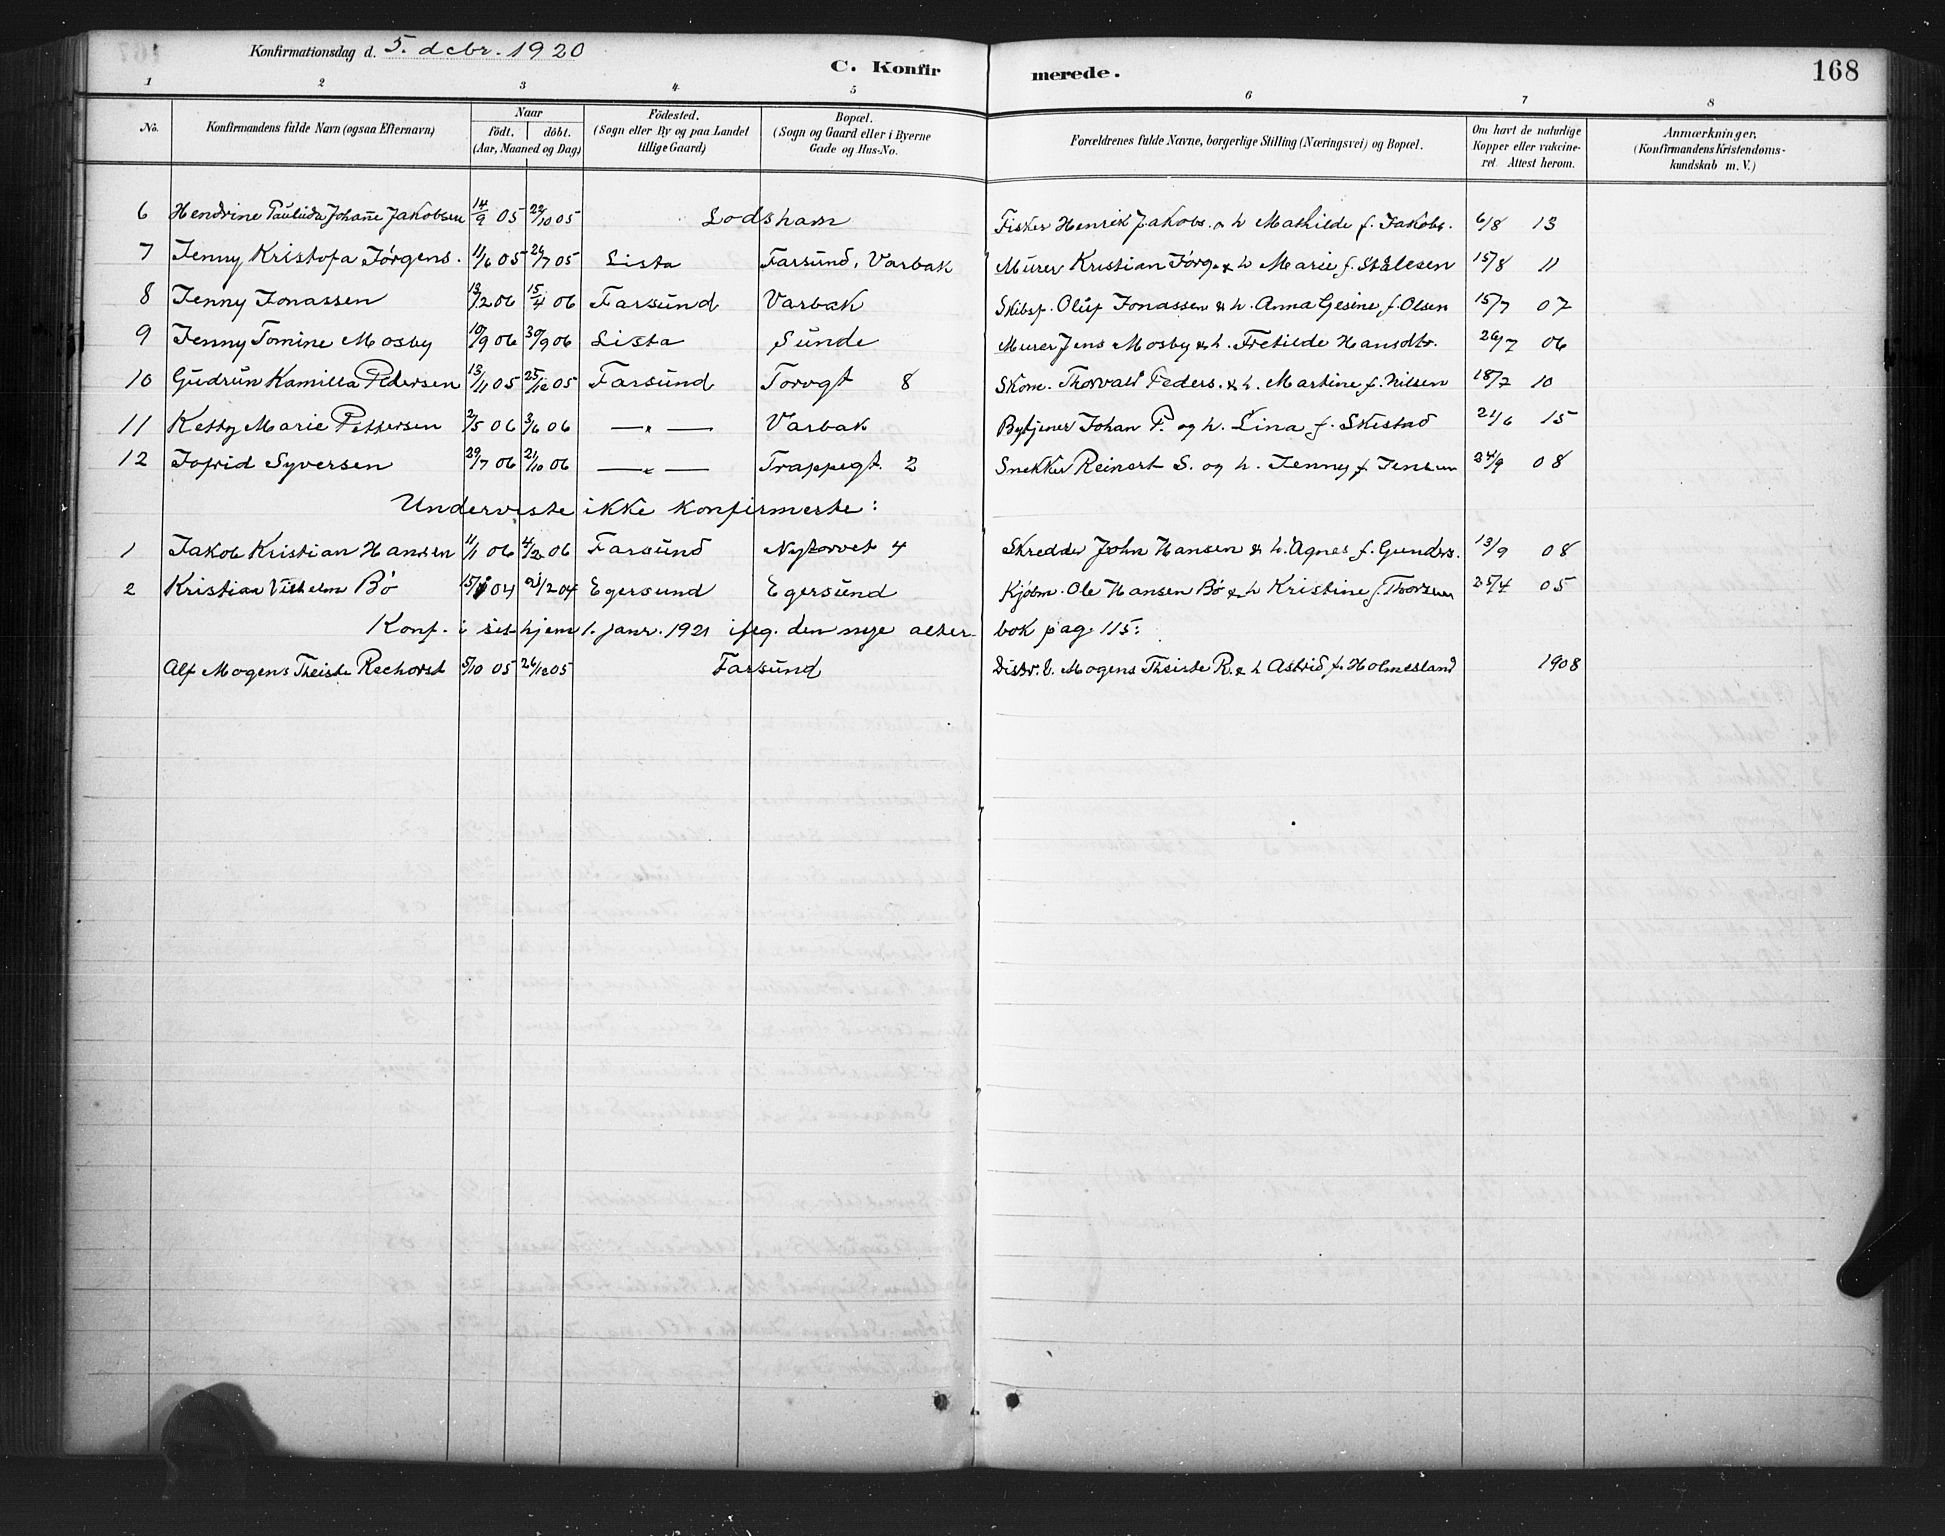 Konfirmationsdag d. 5. debr. 1920
C. Konfirmerede. 168
1 2 3 4 5 6 7 8
No. Konfirmandens fulde Navn (ogsaa Efternavn) Naar födt. döbt. (Aar, Maaned og Dag) Födested. (Sogn eller By og paa Landet tillige Gaard) Bopæl. (Sogn og Gaard eller i Byerne Gade og Hus-No. Forældrenes fulde Navne, borgerlige Stilling (Næringsvei) og Bopæl. Om havt de naturlige Kopper eller vakcineret. Attest herom. Anmærkninger, (Konfirmandens Kristendomskundskab m. V.)
6 Hendrine Paulida Johañe Jakobsen 14/9 05 22/10 05 Lodsham Fisker Henrik Jakobs. o h Mathilde f. Jakobs. 6/8 13
7 Jenny Kristofa Jørgens. 11/6 05 24/7 05 Lista Farsund, Varbak Murer Kristian Jørg. & h Marie f. Stålesen 15/8 11
8 Jenny Jonassen 13/2 06 15/4 06 Farsund Varbak Skibsf. Oluf Jonassen & h. Anna Gesine f. Olsen 15/7 07
9 Jenny Tomine Mosby 10/9 06 30/9 06 Lista Sunde Murer Jens Mosby & h. Fretilde Hansdtr. 26/7 06
10 Gudrun Kamilla Pedersen 13/11 05 25/12 05 Farsund Torvgt 8 Skom. Thorvald Peders. & h. Martine f. Nilsen 18/7 10
11 Ketty Marie Pettersen 2/5 06 3/6 06 —„— Varbak Bytjener Johan P. og h. Lina f. Skistad 21/6 15
12 Jofrid Syversen 29/7 06 21/10 06 —„— Trappegt. 2 Snekker Reinert S. og h. Jenny f. Jensen 24/9 08
Underviste ikke konfirmerte:
1 Jakob Kristian Hansen 11/1 06 4/2 06 Farsund Nytorvet 4 Skredder John Hansen & h. Agnes f. Gunders. 13/9 08
2 Kristian Vilhelm Bø 04 04 Egersund Egersund Kjøbm. Ole Hansen Bø & h Kristine f. Thorsen 25/4 05
Konf. i sit hjem 1. janr. 1921 ifg. den nye alterbok pag. 115:
Alf Mogens Theiste Rechorst 5/10 05 26/12 05 Farsund Distr. l. Mogens Theiste R. & h Astrid f. Holmesland 1908